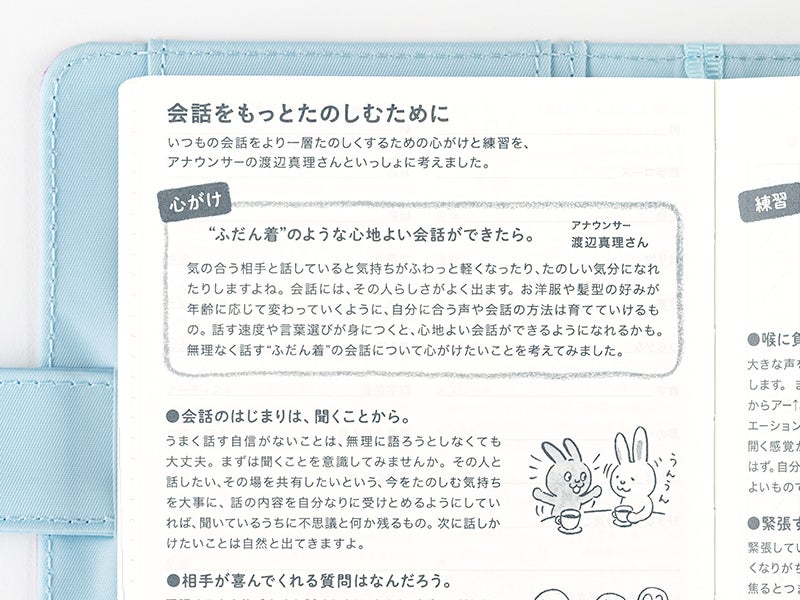 会話をもっとたのしむために
いつもの会話をより一層たのしくするための心がけと練習を、
アナウンサーの渡辺真理さんといっしょに考えました。
心がけ
“ふだん着”のような心地よい会話ができたら。
アナウンサー
渡辺真理さん
気の合う相手と話していると気持ちがふわっと軽くなったり、たのしい気分になれ
たりしますよね。会話には、その人らしさがよく出ます。お洋服や髪型の好みが
年齢に応じて変わっていくように、自分に合う声や会話の方法は育てていけるも
の。話す速度や言葉選びが身につくと、心地よい会話ができるようになれるかも。
無理なく話す“ふだん着”の会話について心がけたいことを考えてみました。
●会話のはじまりは、聞くことから。
うまく話す自信がないことは、無理に語ろうとしなくても
大丈夫。まずは聞くことを意識してみませんか。その人と
話したい、その場を共有したいという、今をたのしむ気持ち
を大事に、話の内容を自分なりに受けとめるようにしてい
れば、聞いているうちに不思議と何か残るもの。次に話しか
けたいことは自然と出てきますよ。
うんうん
●相手が喜んでくれる質問はなんだろう。
練習
●喉に負
大きな声を
します。ま
からアー↑
エーション
開く感覚が
はず。自分
よいもので
●緊張す
緊張してい
くなりがち
焦るとつま